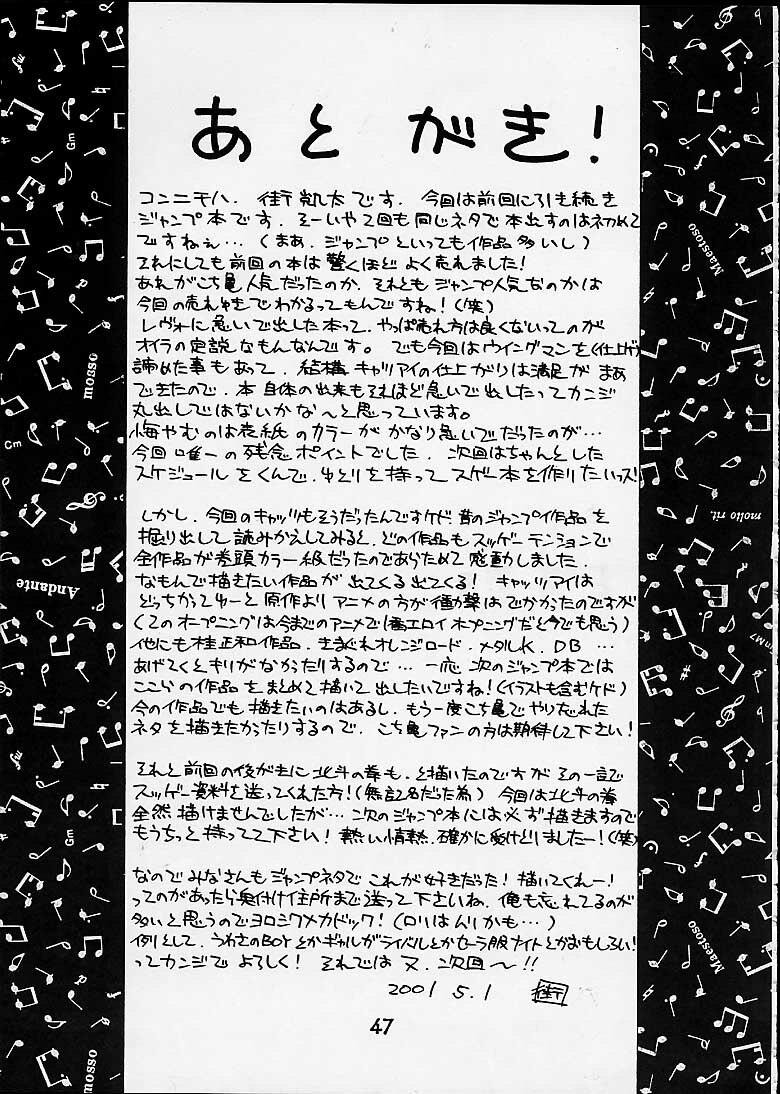 あとがき！
コンニチハ．街凱太です．今回は前回に引き続き
ジャンプ本です．そーいや2回も同じネタで本出すのは初めて
ですねぇ…（まあ．ジャンプといっても作品多いし）
それにしても前回の本は驚くほどよく売れました！
あれがこち亀人気だったのか．それともジャンプ人気なのかは
今回の売れゆきでわかるってもんですね！（笑）
レヴォに急いで出した本って．やっぱ売れ方は良くないってのが
オイラの定説なもんなんです。でも今回はウイングマンを（仕上げ）
諦めた事もあって．結構キャツアイの仕上がりは満足が まあ
できたので．本自体の出来もそれほど急いで出したってカンジ
丸出しではないかな〜と思っています。
悔やむのは表紙のカラーがかなり急いでだったのが…
今回唯一の残念ポイントでした．次回はちゃんとした
スケジュールをくんで．ゆとりを持ってスゲー本を作りたいっス！
しかし．今回のキャッツもそうだったんですケド 昔のジャンプ作品を
掘り出して読みかえしてみると．どの作品もスッゲーテンションで
全作品が巻頭カラー級だったのであらためて感動しました．
なもんで描きたい作品が出てくる出てくる！ キャッツアイは
どっちかってゆーと原作よりアニメの方が衝撃はでかかったのですが
（2のオープニングは今までのアニメで1番エロイオープニングだと今でも思う）
他にも桂正和作品．きまぐれオレンジロード．メタルK．DB…
あげてくとキリがなかったりするので…一応 次のジャンプ本では
ここらの作品をまとめて描いて出したいですね！（イラストも含むケド）
今の作品でも描きたいのはあるし．もう一度こち亀でやり忘れた
ネタを描きたかったりするので．こち亀ファンの方は期待して下さい！
それと前回の後がきに北斗の拳も．と描いたのですが その一言で
スッゲー資料を送ってくれた方！（無記名だった為）今回は北斗の拳
全然描けませんでしたが…次のジャンプ本には必ず描きますので
もうちっと持ってて下さい！熱い情熱．確かに受けとりましたー！（笑）
なのでみなさんもジャンプネタで これが好きだった！描いてくれー！
ってのがあったら奥付け住所まで送って下さいね．俺も忘れてるのが
多いと思うのでヨロシクメカドック！（ロリはムリかも…）
例として．うわさのBOYとかギャルがライバルとかセーラ服ナイトとかおもしろい！
ってカンジでよろしく！ それでは又．次回〜！！
2001 5.1 街
47
mosso
Andante
Maestoso
molto rit.
Gm
Cm